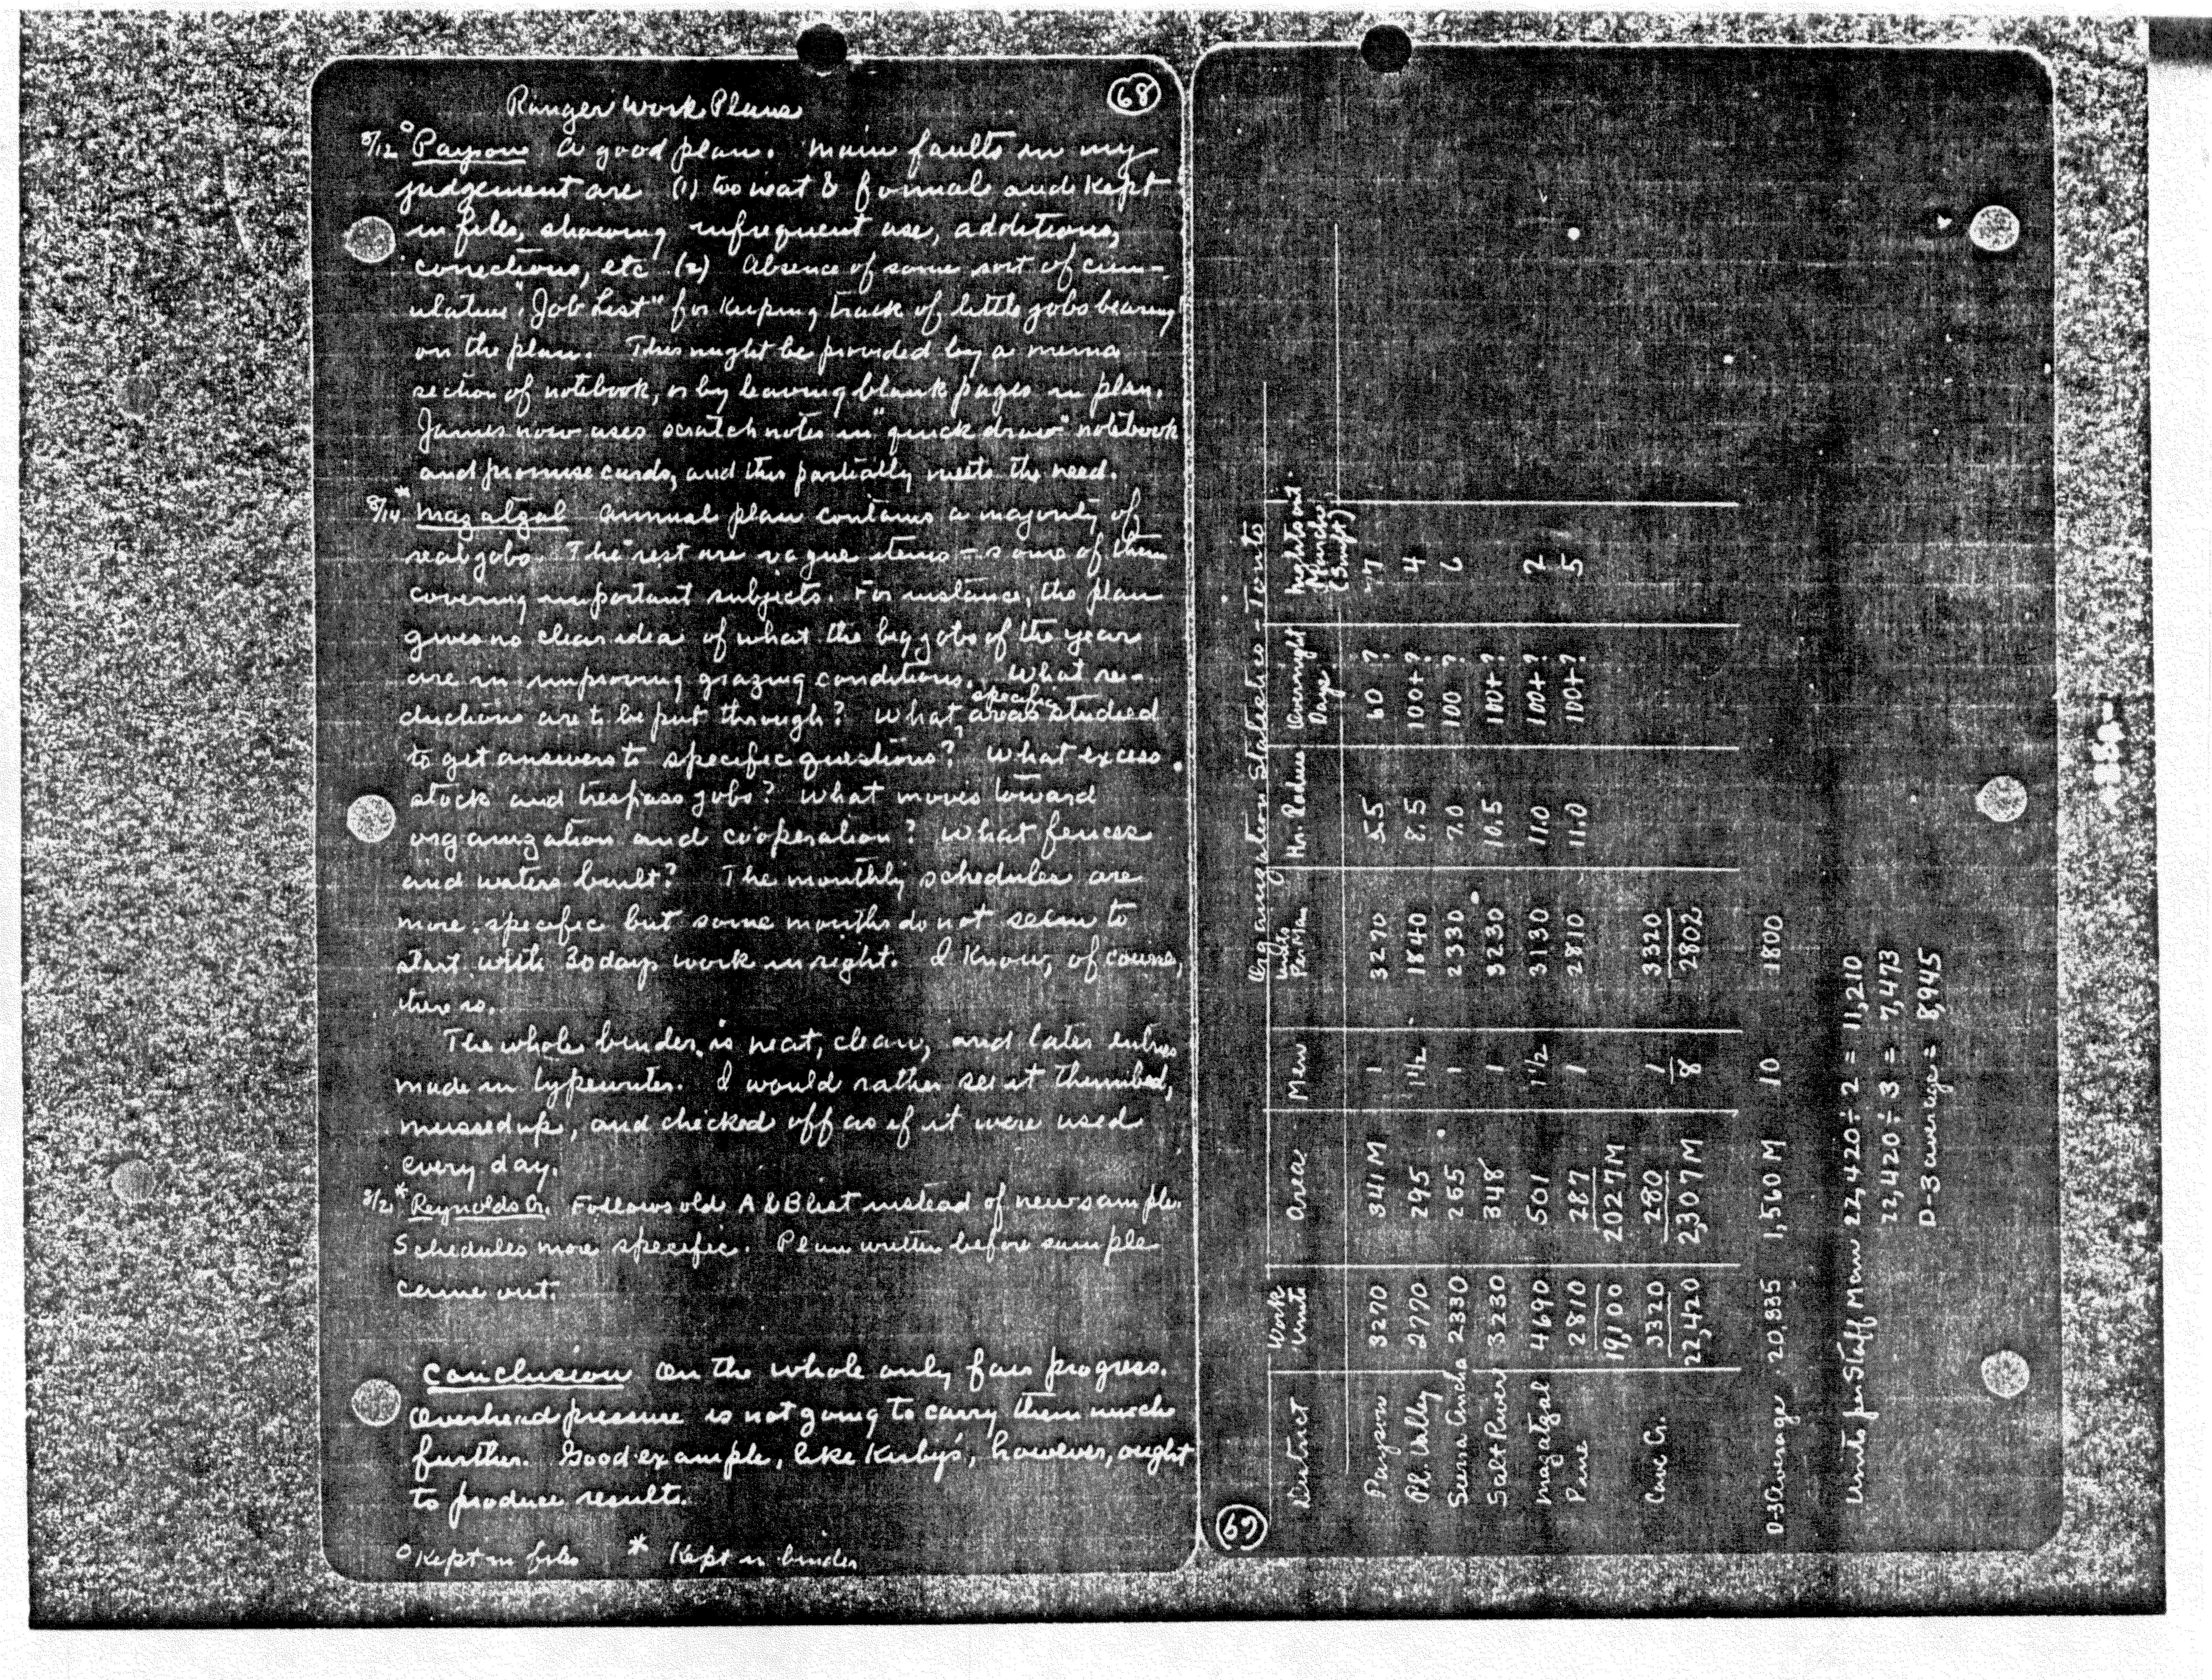 68
Ranger Work Plans
8/12 ° Payson A good plan. Main faults in my
judgement are (1) too neat & formal and kept
in files, showing infrequent use, additions,
corrections, etc (2) Absence of some sort of cum-
ulative "Job List" for keeping track of little jobs bearing
on the plan. This might be provided by a memo
section of notebook, or by leaving blank pages in plan.
James now uses scratch notes in "quick draw" notebook
and promise cards, and this partially meets the need.
8/14 * Mazatzal Annual plan contains a majority of
real jobs. The rest are vague items – some of them
covering important subjects. For instance, the plan
gives no clear idea of what the big jobs of the year
are in improving grazing conditions. What re-
ductions are to be put through? What specific areas studied
to get answers to specific questions? What excess
stock and trespass jobs? What moves toward
organization and cooperation? What fences
and waters built? The monthly schedules are
more specific but some months do not seem to
start with 30 days work in sight. I know, of course,
there is.
The whole binder is neat, clean, and later entries
made in typewriter. I would rather see it thumbed,
messed up, and checked off as if it were used
every day.
8/21 * Reynolds Cr. Follows old A & B list instead of new sample.
Schedules more specific. Plan written before sample
came out.
Conclusion On the whole only fair progress.
Overhead pressure is not going to carry them much
further. Good example, like Kirby's, however, ought
to produce results.
° Kept in files * Kept in binder
69
Organization Statistics – Tonto
District Work Units Area Men Units Per Man Hr. Radius Overnight Days Nights out Munche (Swift)
Payson 3270 341 M 1 3270 5.5 60 ? 7
Pl. Valley 2770 295 1½ 1840 8.5 100+? 4
Sierra Ancha 2330 255 1 2330 7.0 100 ? 6
Salt River 3230 348 1 3230 10.5 100+ ?
Mazatzal 4690 501 1½ 3130 11.0 100+? 2
Pine 2810 287 1 2810 11.0 100+? 5
19,100 2027 M
Cave Cr. 3320 280 1 3320
22,420 2,307 M 8 2802
D-3 Average 20,835 1,560 M 10 1800
Units per Staff Man 22,420 ÷ 2 = 11,210
22,420 ÷ 3 = 7,473
D-3 average = 8,945